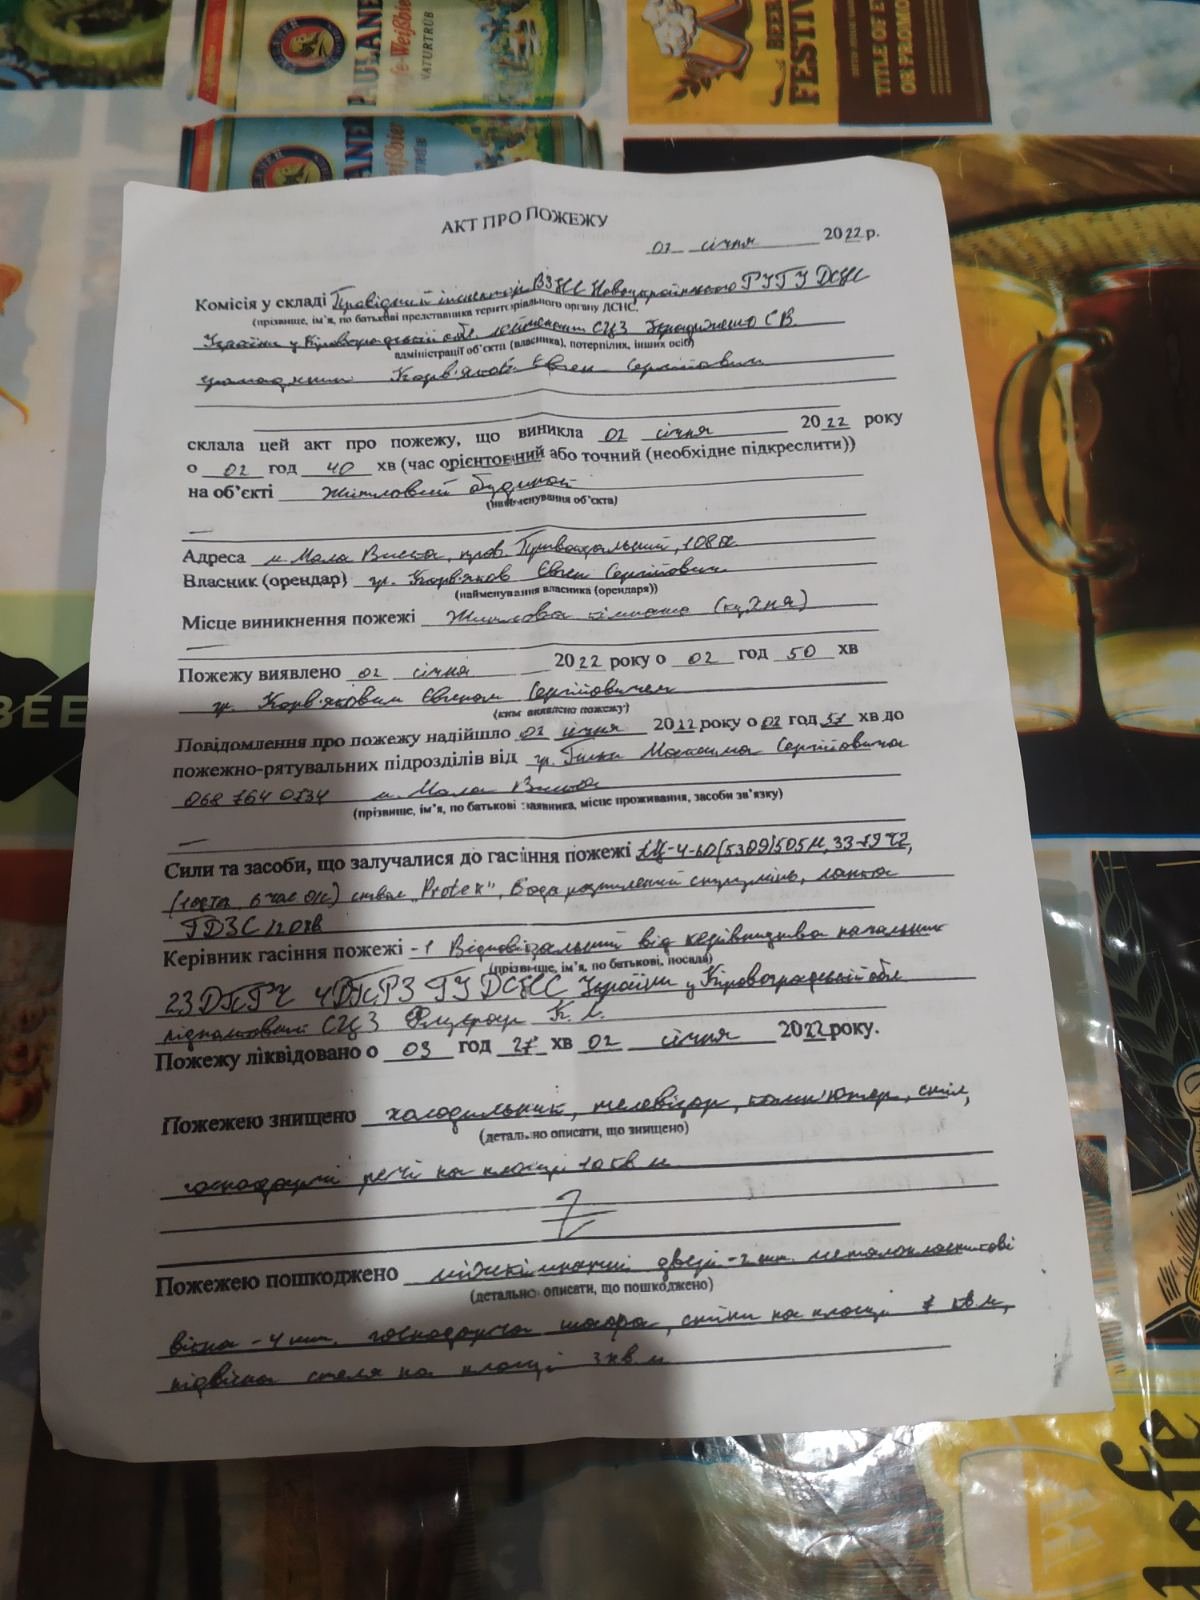 PAULANER
fe-Weißbier
NATURTRÜB
BEER
FESTIV
TITLE OF E
OR FROMO
АКТ ПРО ПОЖЕЖУ
02 січня 2022 р.
Комісія у складі Провідний інспектор ВЗНС Новоукраїнського РУ ГУ ДСНС
(прізвище, ім'я, по батькові представника територіального органу ДСНС,
України у Кіровоградській обл. лейтенант СЦЗ С В.
адміністрації об'єкта (власника), потерпілих, інших осіб)
громадянин Корв'яков Євген Сергійович
склала цей акт про пожежу, що виникла 02 січня 2022 року
о 02 год 40 хв (час орієнтовний або точний (необхідне підкреслити))
на об'єкті Житловий будинок
(найменування об'єкта)
Адреса м. Мала Виска, пров. Привокзальний, 108а
Власник (орендар) гр. Корв'яков Євген Сергійович
(найменування власника (орендаря))
Місце виникнення пожежі Житлова кімната (кухня)
Пожежу виявлено 02 січня 2022 року о 02 год 50 хв
гр. Корв'яковим Євгеном Сергійовичем
(ким виявлено пожежу)
Повідомлення про пожежу надійшло 02 січня 2022 року о 02 год 57 хв до
пожежно-рятувальних підрозділів від гр. Максима Сергійовича
068 764 0534 м. Мала Виска
(прізвище, ім'я, по батькові заявника, місце проживання, засоби зв'язку)
Сили та засоби, що залучалися до гасіння пожежі АЦ-4-60(5309)505М, 33-29 ЧГ,
ствол "Protek", Вода розпилений струмінь, ланка
ГДЗС
Керівник гасіння пожежі -1 Відповідальний від керівництва начальник
(прізвище, ім'я, по батькові, посада)
23 ДПРЧ 4 ДПРЗ ГУ ДСНС України у Кіровоградській обл
підполковник СЦЗ К.
Пожежу ліквідовано о 03 год 27 хв 02 січня 2022 року.
Пожежею знищено холодильник, телевізор, комп'ютер, стіл,
(детально описати, що знищено)
господарчі речі на площі 10 кв м
Z
Пожежею пошкоджено міжкімнатні двері -2 шт. металопластикові
(детально описати, що пошкоджено)
вікна - 4 шт. господарча шафа, стіни на площі 7 кв.м,
підвісна стеля на площі 3 кв. м